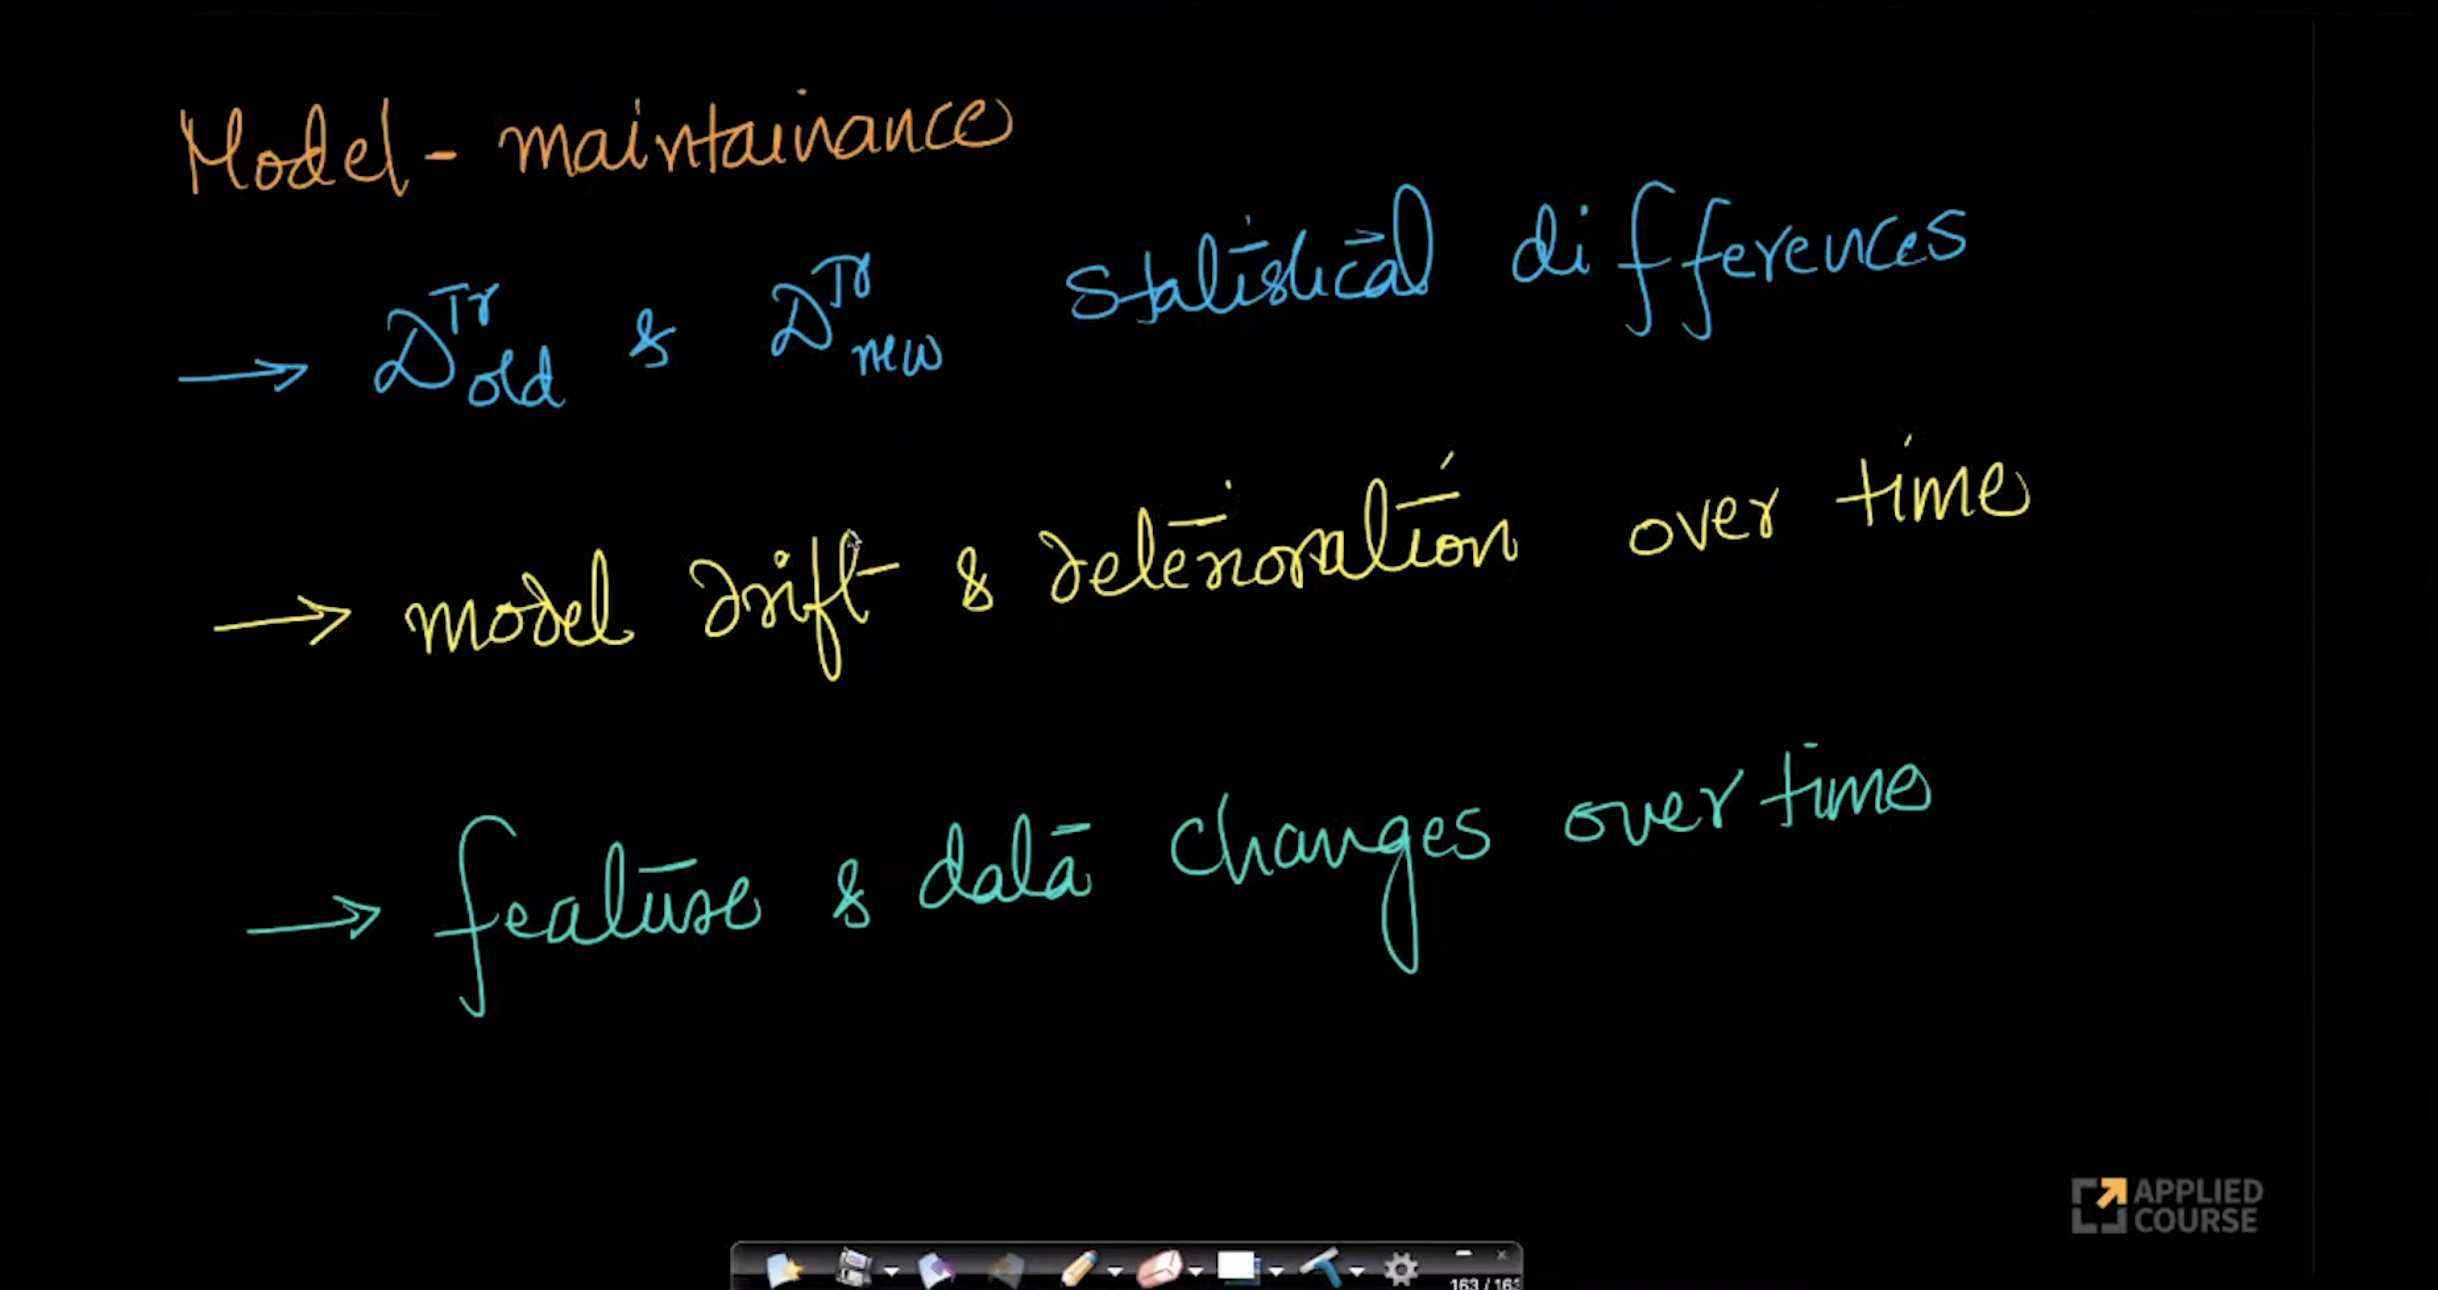 Model - maintainance
→ D^Tr_old & D^Tr_new statistical differences
→ model drift & deterioration over time
→ feature & data changes over time
APPLIED
COURSE